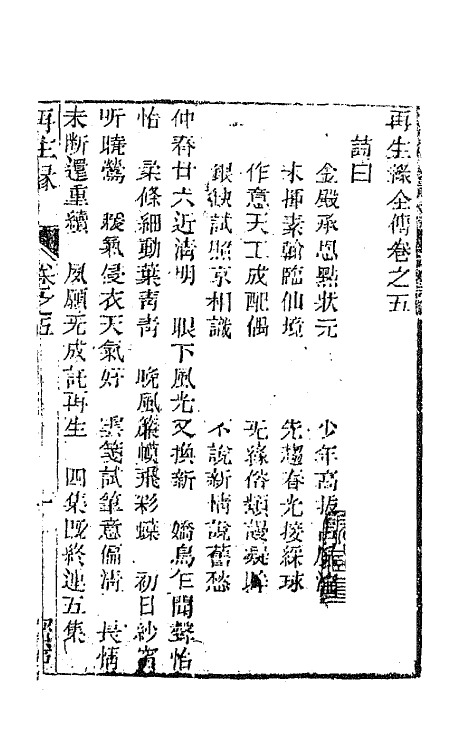 再生緣全傳卷之五
詩曰
金殿承恩點狀元　少年高拔
未揮素翰臨仙境　先趨春光接綵球
作意天工成配偶　死緣俗類謾疑
銀缺試照京相識　不說新情說舊愁
仲春廿六近清明　眼下風光又換新　嬌鳥乍聞聲怡
怡　柔條細動葉青青　晚風簾幙飛彩蝶　初日紗窗
听曉鶯　暖氣侵衣天氣好　雲箋試筆意偏清　長情
未斷還重續　夙願死成託再生　四集既終連五集
再生緣　卷之五　一